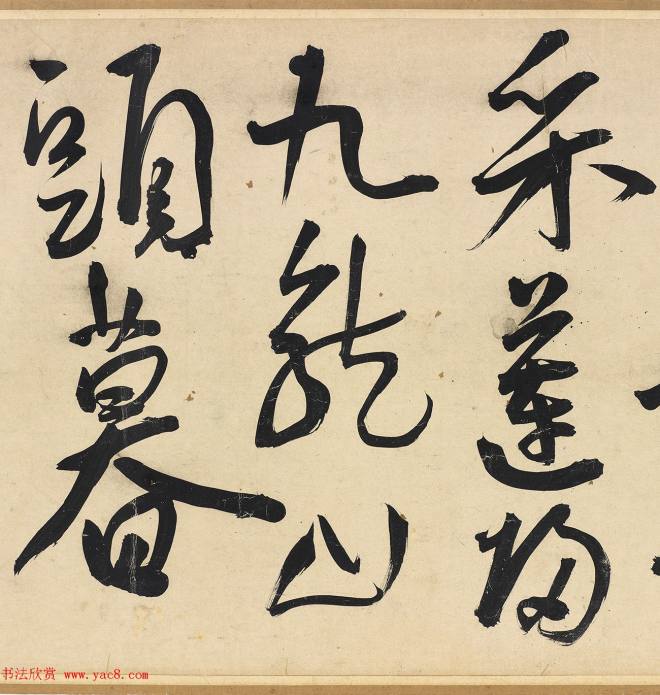 采蓮歸
九龍山
頭暮
书法欣赏 www.yac8.com